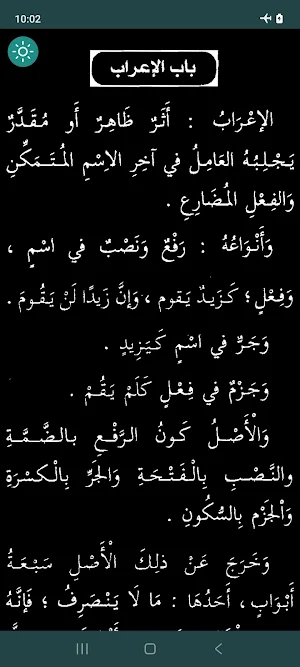 10:02
باب الإعراب
الإعْرَابُ : أَثَرٌ ظَاهِرٌ أَو مُقَدَّرٌ
يَجْلِبُهُ العَامِلُ في آخِرِ الاِسْمِ المُتَمَكِّنِ
وَالفِعْلِ المُضَارِعِ .
وَأَنْوَاعُهُ : رَفْعٌ وَنَصْبٌ في اسْمٍ ،
وَفِعْلٍ ؛ كَزَيدٌ يَقوم ، وَإنَّ زَيدًا لَنْ يَقُومَ .
وَجَرٌّ في اسْمٍ كَبِزيدٍ .
وَجَزْمٌ في فِعْلٍ كَلَمْ يَقُمْ .
وَالْأَصْلُ كَونُ الرَّفْعِ بالضَّمَّةِ
والنَّصْبِ بِالْفَتْحَةِ وَالجَرِّ بِالْكَسْرَةِ
وَالْجَزْمِ بِالسُّكُونِ .
وَخَرَجَ عَنْ ذلِكَ الْأَصْلِ سَبْعَةُ
أَبْوَابٍ ، أَحَدُهَا : مَا لَا يَنْصَرِفُ ؛ فَإِنَّهُ